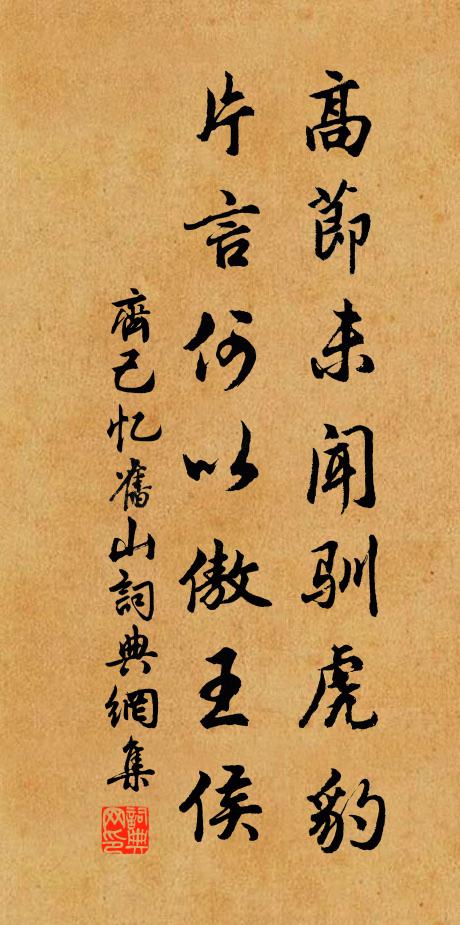 高節未聞馴虎豹
片言何以傲王侯
齊己忆舊山詞典網集
詞典网印